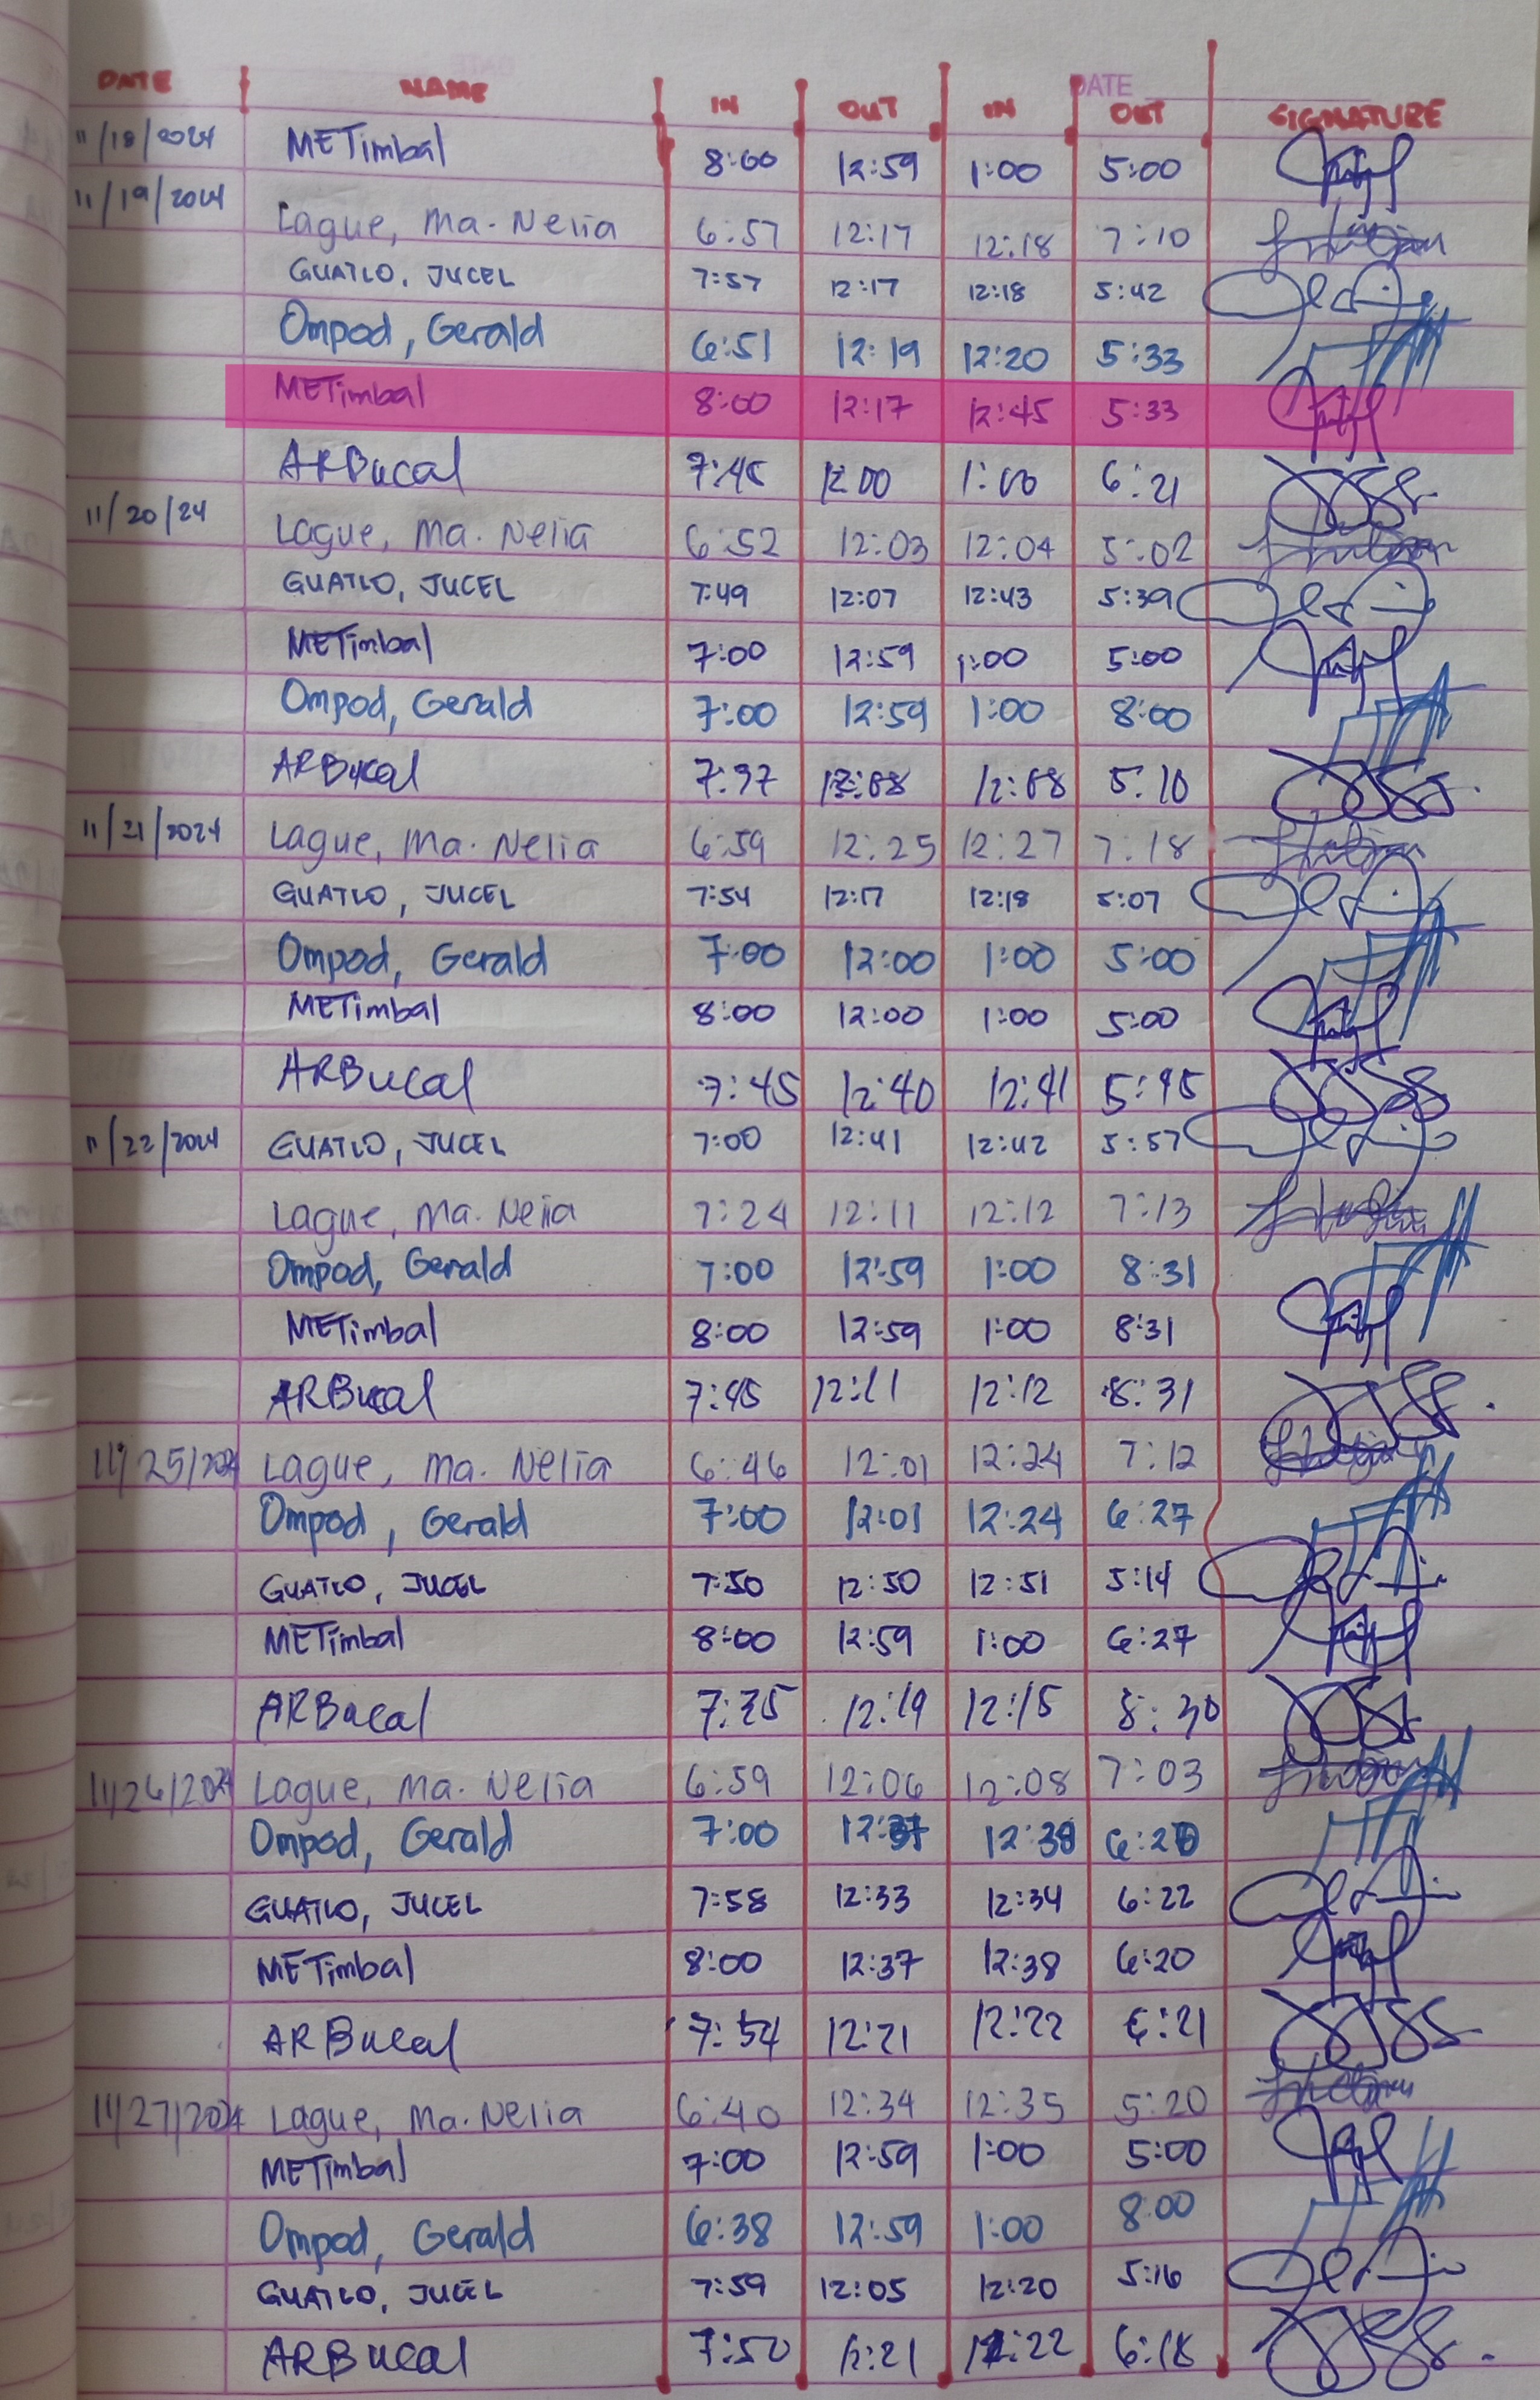 DATE
DATE NAME IN OUT IN OUT SIGNATURE
11/18/2024 METimbal 8:00 12:59 1:00 5:00
11/19/2024 Lague, Ma. Nelia 6:57 12:17 12:18 7:10
GUATLO, JUCEL 7:57 12:17 12:18 5:42
Ompod, Gerald 6:51 12:19 12:20 5:33
METimbal 8:00 12:17 12:45 5:33
ARBucal 7:45 12:00 1:00 6:21
11/20/24 Lague, Ma. Nelia 6:52 12:03 12:04 5:02
GUATLO, JUCEL 7:49 12:07 12:43 5:39
METimbal 7:00 12:59 1:00 5:00
Ompod, Gerald 7:00 12:59 1:00 8:00
ARBucal 7:37 12:08 5:10
11/21/2024 Lague, Ma. Nelia 6:59 12:25 12:27 7:18
GUATLO, JUCEL 7:54 12:17 12:18 5:07
Ompod, Gerald 7:00 12:00 1:00 5:00
METimbal 8:00 12:00 1:00 5:00
ARBucal 7:45 12:40 12:41 5:45
11/22/2024 GUATLO, JUCEL 7:00 12:41 12:42 5:57
Lague, Ma. Nelia 7:24 12:11 12:12 7:13
Ompod, Gerald 7:00 12:59 1:00 8:31
METimbal 8:00 12:59 1:00 8:31
ARBucal 7:45 12:11 12:12 8:31
11/25/2024 Lague, Ma. Nelia 6:46 12:01 12:24 7:12
Ompod, Gerald 7:00 12:01 12:24 6:27
GUATLO, JUCEL 7:50 12:50 12:51 5:14
METimbal 8:00 12:59 1:00 6:27
ARBucal 7:35 12:15 8:30
11/26/2024 Lague, Ma. Nelia 6:59 12:06 12:08 7:03
Ompod, Gerald 7:00 12:37 12:38 6:20
GUATLO, JUCEL 7:58 12:33 12:34 6:22
METimbal 8:00 12:37 12:38 6:20
ARBucal 7:54 12:21 12:22 6:21
11/27/2024 Lague, Ma. Nelia 6:40 12:34 12:35 5:20
METimbal 7:00 12:59 1:00 5:00
Ompod, Gerald 6:38 12:59 1:00 8:00
GUATLO, JUCEL 7:59 12:05 12:20 5:16
ARBucal 7:50 12:21 12:22 6:18